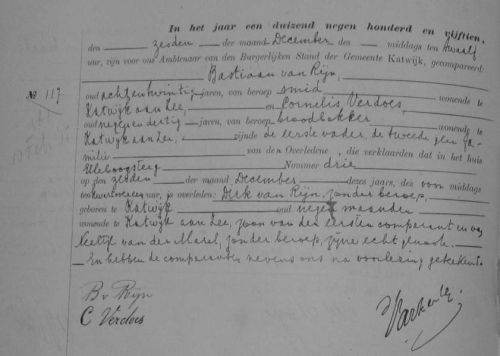 In het jaar een duizend negen honderd en vijftien
den zesden der maand December des middags ten twaalf
ure, zijn voor ons Ambtenaar van den Burgerlijken Stand der Gemeente Katwijk, gecompareerd:
Bastiaan van Rijn,
Nº 117.
oud achtentwintig jaren, van beroep smid wonende te
Katwijk aan Zee, en Cornelis Verdoes,
oud negenendertig jaren, van beroep broodbakker wonende te
Katwijk aan Zee, zijnde de eerste vader, de tweede geen fa-
milie van den Overledene, die verklaarden dat in het huis
Nommer drie
op den zesden der maand December dezes jaars, des voor middags
ten ure, is overleden: Dirk van Rijn, zonder beroep,
geboren te Katwijk oud negen maanden
wonende te Katwijk aan Zee, zoon van den eersten comparant en van
Neeltje van der Marel, zonder beroep, zijne echtgenoote.
En hebben de comparanten nevens ons na voorlezing geteekend.
B v Rijn
C Verdoes